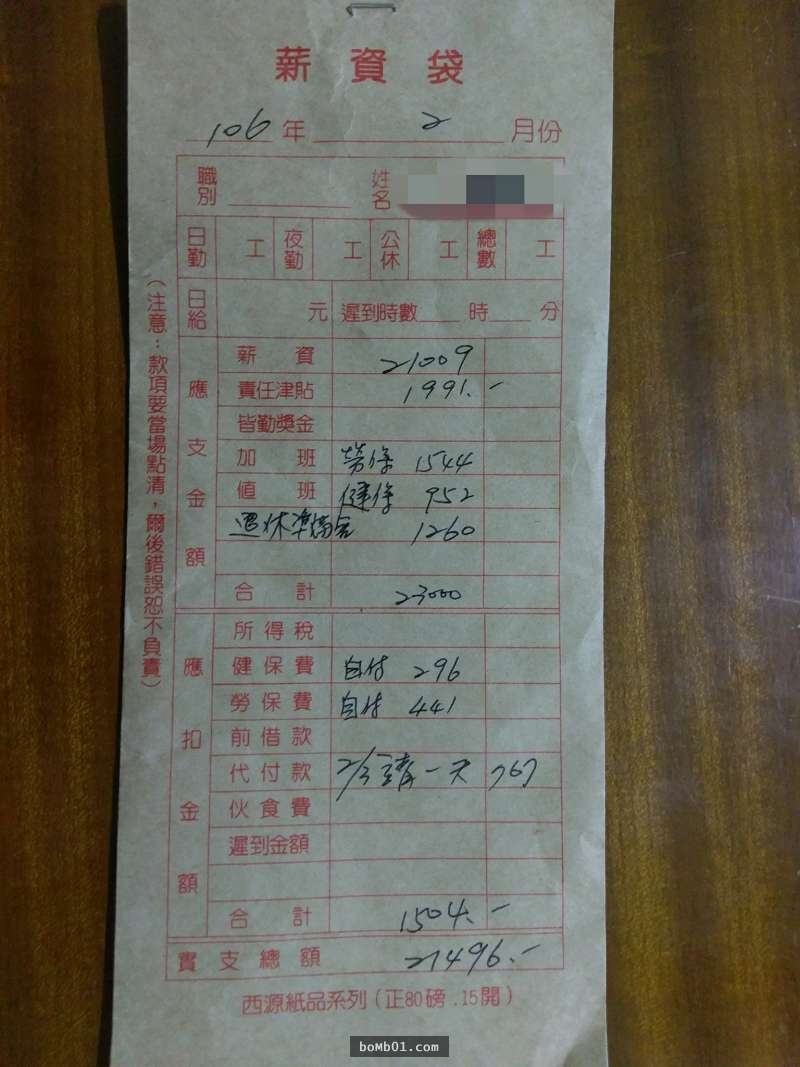 薪資袋
106 年 2 月份
職別 姓名
日勤 工 夜勤 工 公休 工 總數 工
日給 元 遲到時數 時 分
應支金額
薪資 21009
責任津貼 1991.-
皆勤獎金
加班 勞保 1544
值班 健保 952
退休準備金 1260
合計 23000
應扣金額
所得稅
健保費 自付 296
勞保費 自付 441
前借款
代付款 2/3 請一天 767
伙食費
遲到金額
合計 1504.-
實支總額 21496.-
(注意：款項要當場點清，爾後錯誤恕不負責)
西源紙品系列(正80磅.15開)
boMb01.com